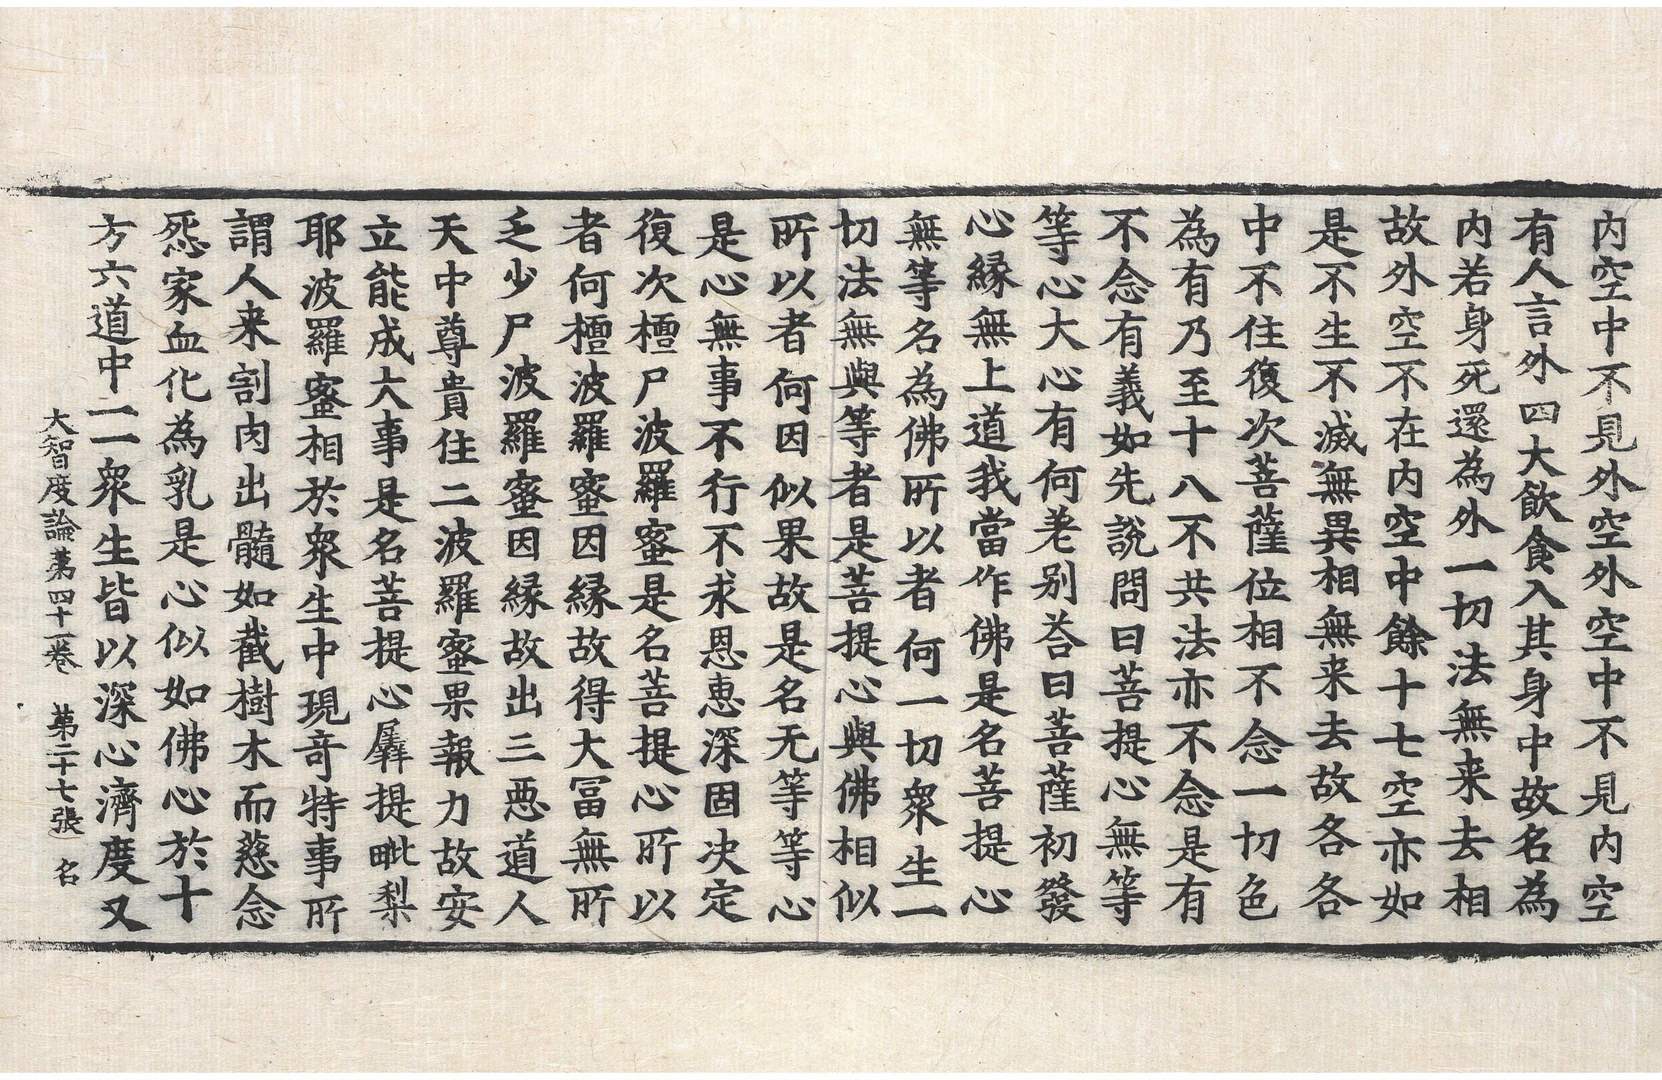 内空中不見外空外空中不見内空
有人言外四大飲食入其身中故名為
内若身死還為外一切法無来去相
故外空不在内空中餘十七空亦如
是不生不滅無異相無来去故各各
中不住復次菩薩位相不念一切色
為有乃至十八不共法亦不念是有
不念有義如先說問曰菩提心無等
等心大心有何差别荅曰菩薩初發
心縁無上道我當作佛是名菩提心
無等名為佛所以者何一切衆生一
切法無與等者是菩提心與佛相似
所以者何因似果故是名无等等心
是心無事不行不求恩惠深固决定
復次檀尸波羅蜜是名菩提心所以
者何檀波羅蜜因縁故得大冨無所
乏少尸波羅蜜因縁故出三惡道人
天中尊貴住二波羅蜜果報力故安
立能成大事是名菩提心羼提毗梨
耶波羅蜜相於衆生中現奇特事所
謂人来割肉出髓如截樹木而慈念
怨家血化為乳是心似如佛心於十
方六道中一一衆生皆以深心濟度又
大智度論第四十一卷 第二十七張 名